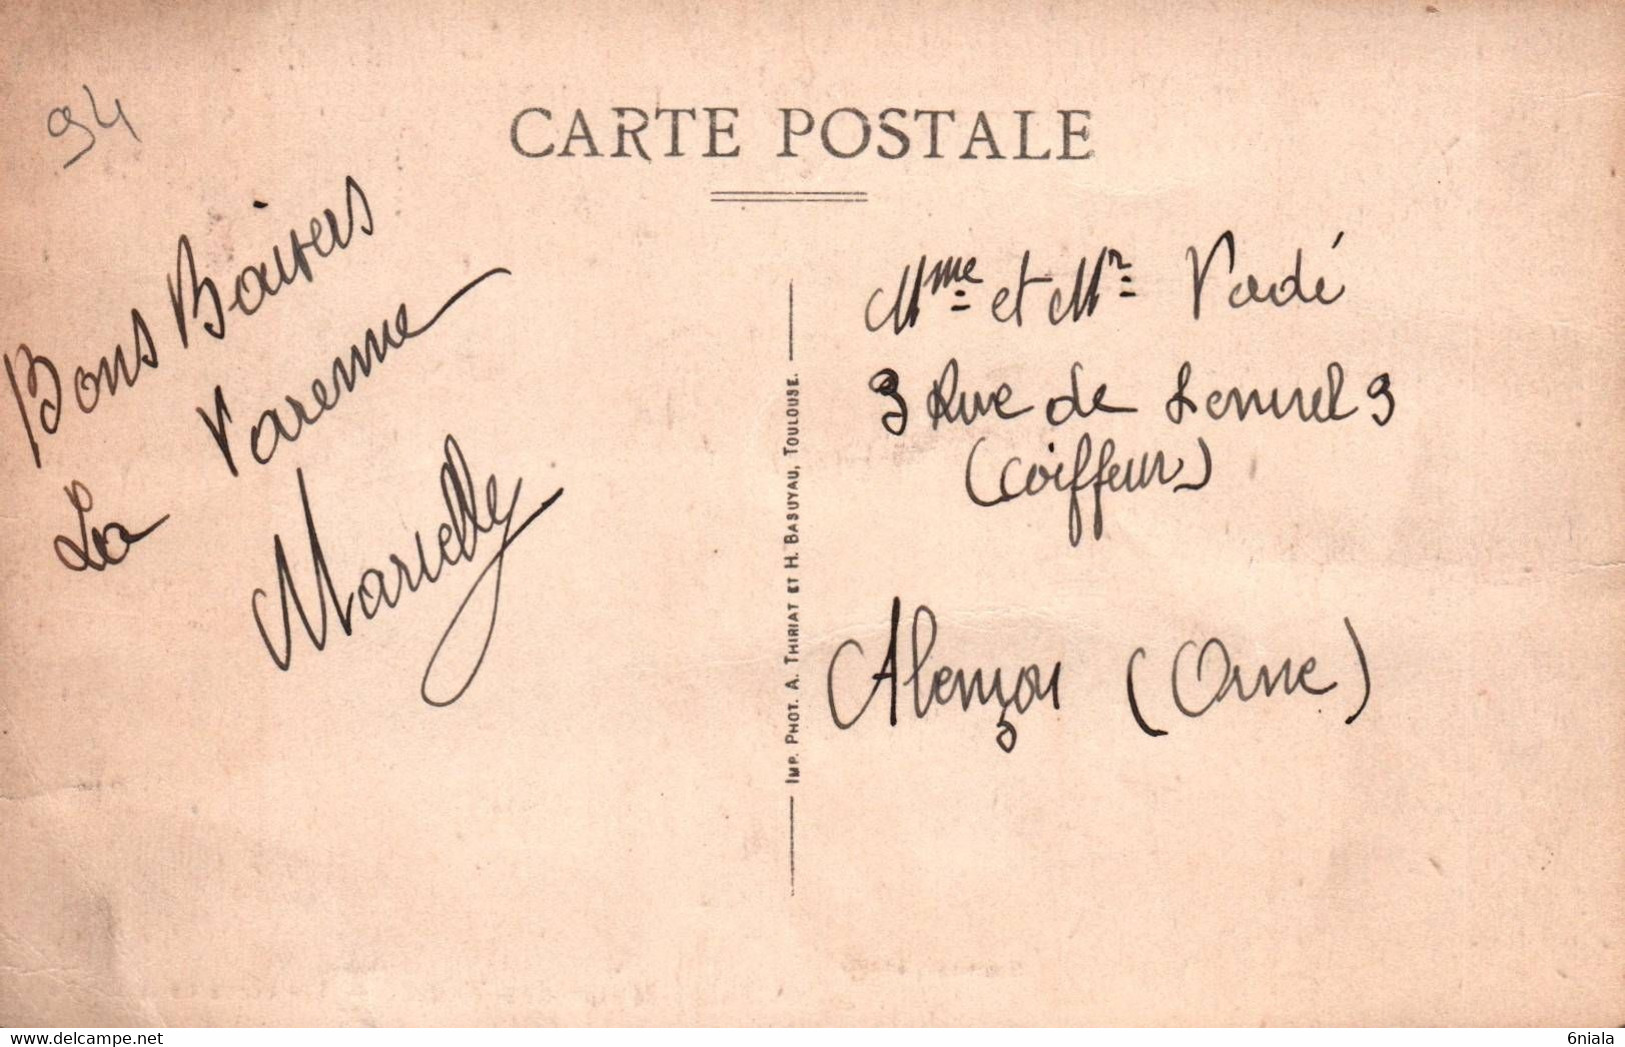 94
CARTE POSTALE
Bons Baisers
La Varenne
Marielly
IMP. PHOT. A. THIRIAT ET H. BASUYAU, TOULOUSE.
Mme et Mr Vadé
3 Rue de 3
(coiffeur)
Alençon (Orne)
https://www.delcampe.net
6niala